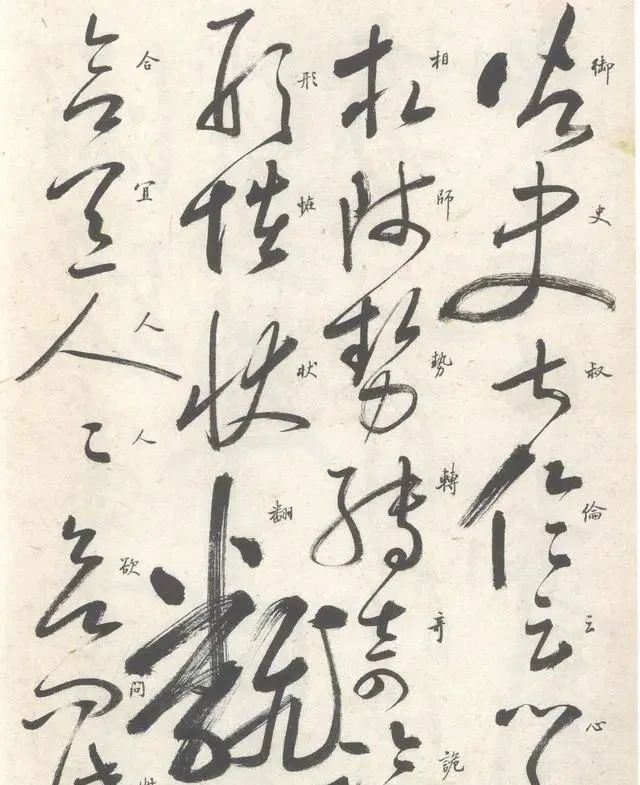 御史叔倫云心
相師勢轉奇詭
形恠状翻
合宜人人欲問